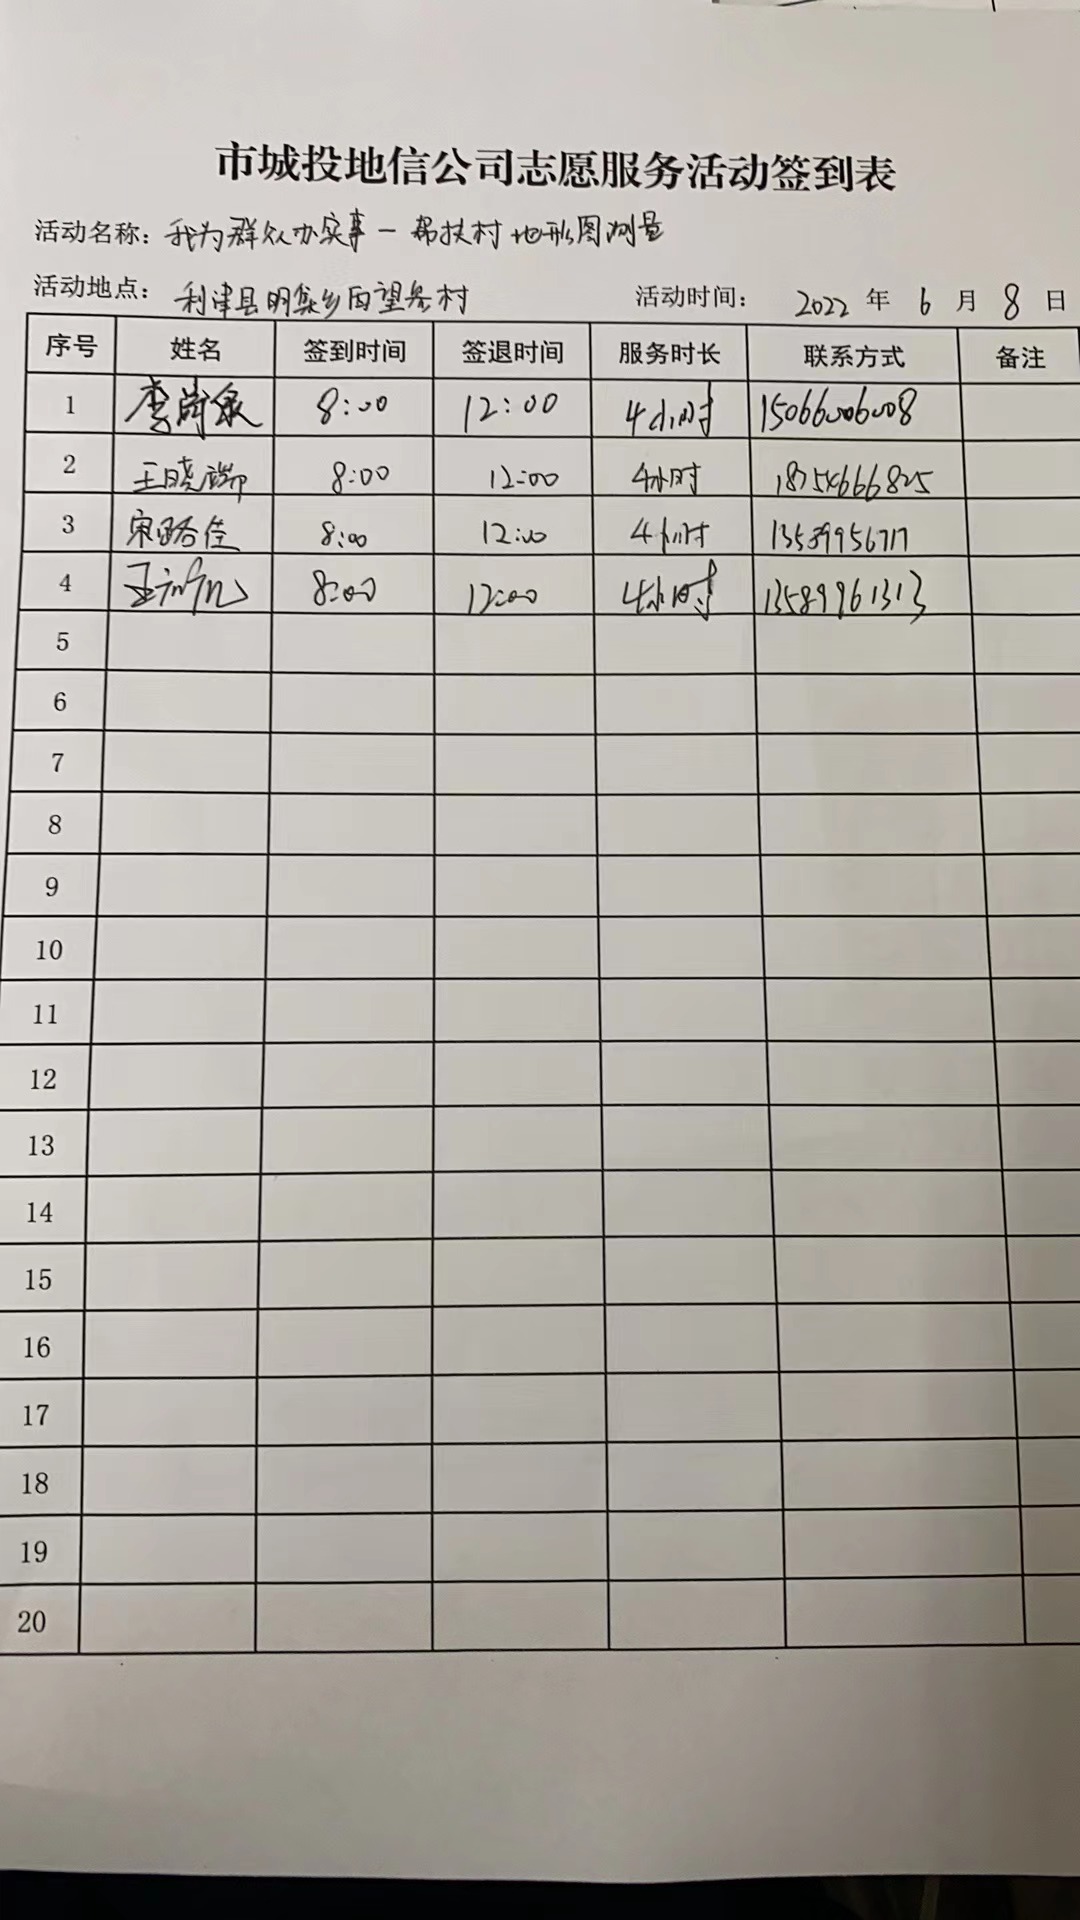 市城投地信公司志愿服务活动签到表
活动名称：我为群众办实事－帮扶村地形图测量
活动地点：利津县明集乡后望参村 活动时间：2022年6月8日
序号 姓名 签到时间 签退时间 服务时长 联系方式 备注
1 李 8:00 12:00 4小时 15066006008
2 王晓端 8:00 12:00 4小时 18754666825
3 宋路佳 8:00 12:00 4小时 13589956717
4 王 8:00 12:00 4小时 13589961313
5
6
7
8
9
10
11
12
13
14
15
16
17
18
19
20